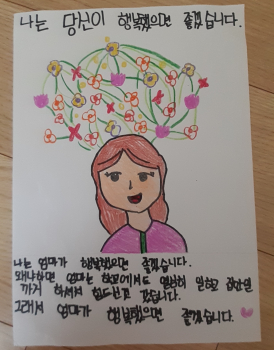 나는 당신이 행복했으면 좋겠습니다.
나는 엄마가 행복했으면 좋겠습니다.
왜냐하면 엄마는 학교에서도 열심히 일하고 집안일
까지 하셔서 힘드신것 같습니다.
그래서 엄마가 행복했으면 좋겠습니다.